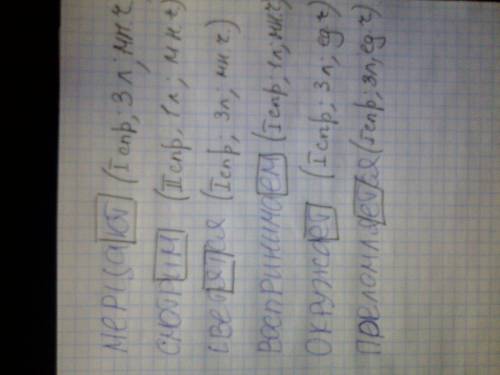 мерцают (I спр; 3 л; мн.ч.
смотрим (II спр, 1 л; мн.ч)
светятся (I спр; 3л; мн ч.)
воспринимаем (I спр; 1л; мн.ч)
окружает (I спр; 3л; ед ч)
преломляется (I спр; 3л; ед ч)